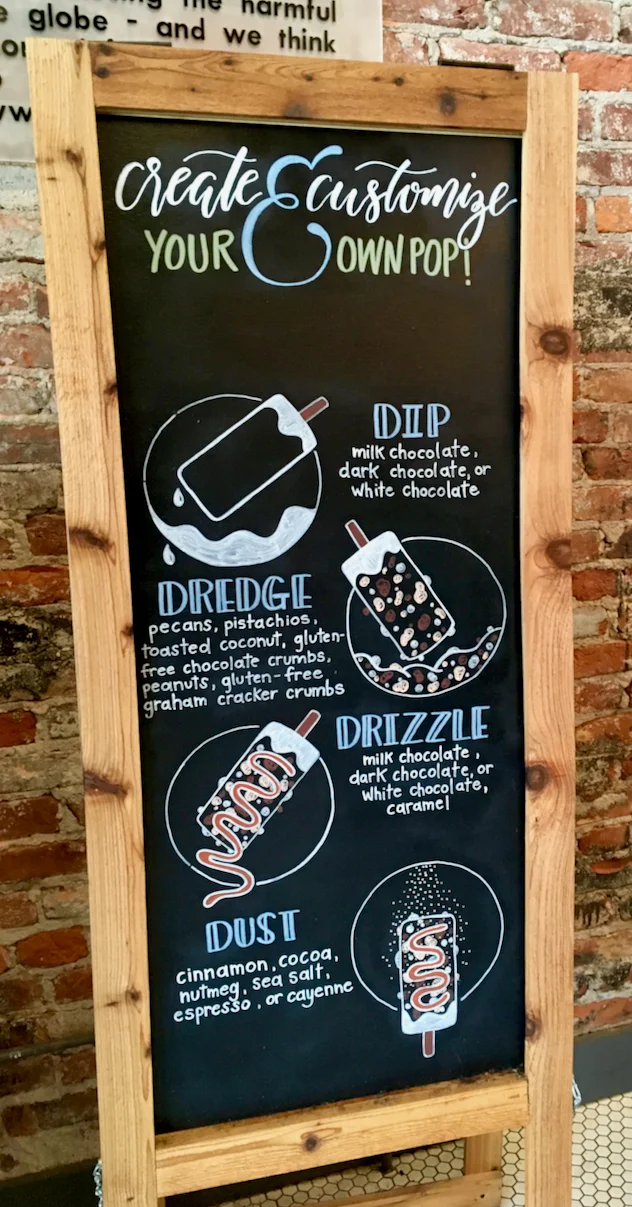 the harmful
globe - and we think
create & customize
YOUR OWN POP!
DIP
milk chocolate,
dark chocolate, or
white chocolate
DREDGE
pecans, pistachios,
toasted coconut, gluten-
free chocolate crumbs,
peanuts, gluten-free
graham cracker crumbs
DRIZZLE
milk chocolate,
dark chocolate, or
white chocolate,
caramel
DUST
cinnamon, cocoa,
nutmeg, sea salt,
espresso, or cayenne